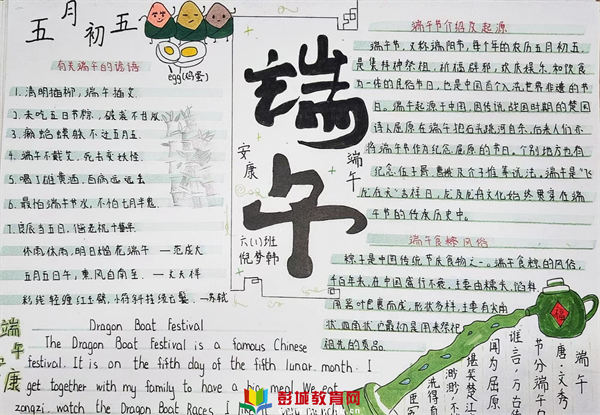 五月初五
egg(鸡蛋)
有关端午的谚语
1.清明插柳,端午插艾.
2.未吃五日节粽,破裘不甘放
3.癞蛤蟆躲不过五月五
4.端午不戴艾,死去变妖怪.
5.喝了雄黄酒,百病远远去
6.最怕端午节水,不怕七月半鬼.
7.良辰当五日,偕老祝千年.
休雨休雨,明日榴花端午 —范成大
五月五日午,熏风自南至. —文天祥
彩线轻缠红玉臂,小符斜挂绿云鬟 —苏轼
端午
安康
端午
六(1)班
倪梦韩
端午节介绍及起源
端午节,又称端阳节,每个年的农历五月初五,
是集拜神祭祖,祈福辟邪,欢庆娱乐和饮食
为一体的民俗节日,也是中国首个入选世界非遗的节
日。端午起源于中国,传说战国时期的楚国
诗人屈原在端午抱石跳汨罗江自尽,后来人们亦
将端午节作为纪念屈原的节日。个别地方也有
纪念伍子胥 曹娥及介子推等说法。端午是“飞
龙在天”吉祥日,龙及龙舟文化始终贯穿在端
午节的传承历史中。
端午食粽风俗
粽子是中国传统节庆食物之一。端午食粽的风俗,
千百年来,在中国盛行不衰,主要由糯米、馅料
用箬叶包裹而成,形状多样,主要有尖角
状、四角状,它最初是用来祭祀
祖先的贡品。
端午安康
Dragon Boat Festival
The Dragon Boat Festival is a famous Chinese
festival. It is on the fifth day of the fifth lunar month. I
get together with my family to have a big meal. We eat
zongzi, watch the Dragon Boat Races. I
福
端午
唐·文秀
节分端午
谁言万古
闻为屈原
堪笑楚江
渺渺不
洗得
臣
彭城教育网